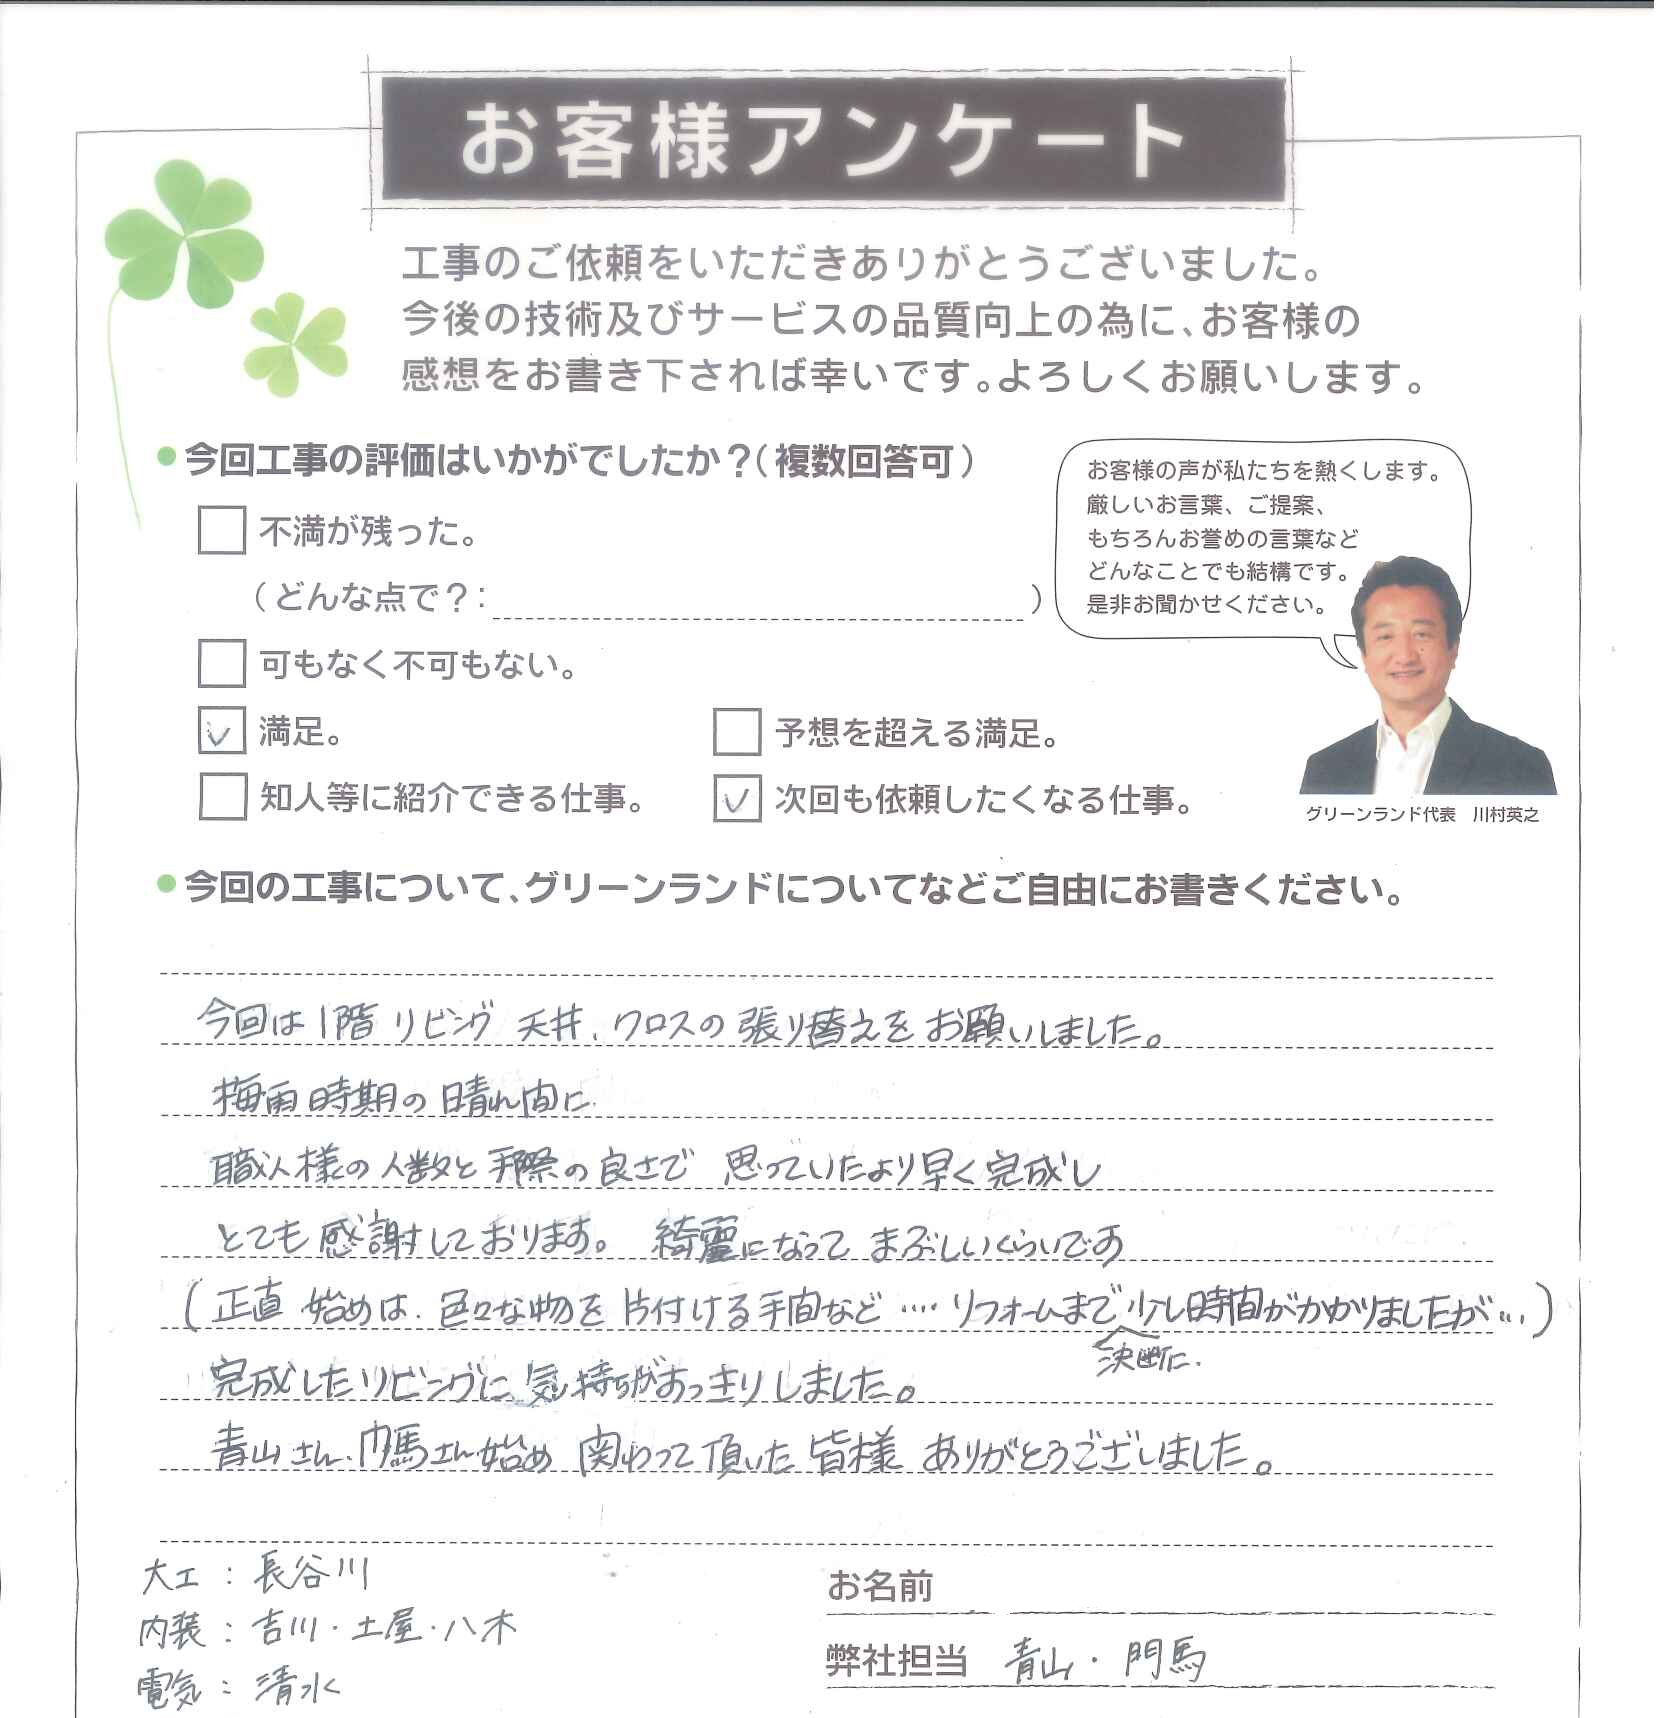 お客様アンケート
工事のご依頼をいただきありがとうございました。
今後の技術及びサービスの品質向上の為に、お客様の
感想をお書き下されば幸いです。よろしくお願いします。
今回工事の評価はいかがでしたか？（複数回答可）
不満が残った。
（どんな点で？： ）
可もなく不可もない。
満足。
予想を超える満足。
知人等に紹介できる仕事。
次回も依頼したくなる仕事。
お客様の声が私たちを熱くします。
厳しいお言葉、ご提案、
もちろんお誉めの言葉など
どんなことでも結構です。
是非お聞かせください。
グリーンランド代表 川村英之
今回の工事について、グリーンランドについてなどご自由にお書きください。
今回は1階リビング 天井、クロスの張り替えをお願いしました。
梅雨時期の晴れ間に
職人様の人数と手際の良さで 思っていたより早く完成し
とても感謝しております。 綺麗になって まぶしいくらいです
(正直 始めは、色々な物を片付ける手間など ‥‥ リフォームまで少し時間がかかりましたが…)
決断に、
完成したリビングに、気持ちがすっきりしました。
青山さん、門馬さん始め 関わって頂いた皆様 ありがとうございました。
大工：長谷川
内装：吉川・土屋・八木
電気：清水
お名前
弊社担当 青山・門馬